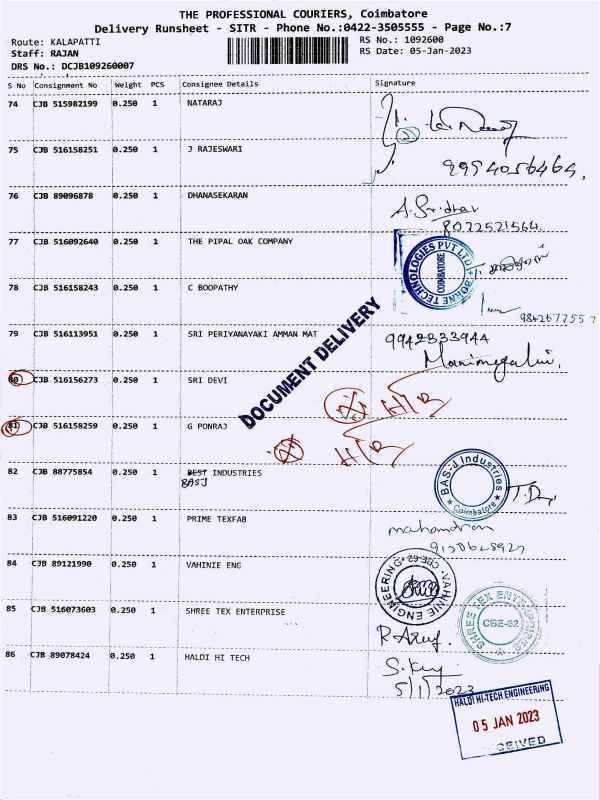 THE PROFESSIONAL COURIERS, Coimbatore
Delivery Runsheet - SITR - Phone No.:0422-3505555 - Page No.:7
Route: KALAPATTI
RS No.: 1092600
Staff: RAJAN
RS Date: 05-Jan-2023
DRS No.: DCJB109260007
S No Consignment No Weight PCS Consignee Details Signature
74 CJB 515982199 0.250 1 NATARAJ
75 CJB 516158251 0.250 1 J RAJESWARI
9994056464
76 CJB 89096878 0.250 1 DHANASEKARAN
A. Sridhar
8072521564
77 CJB 516092640 0.250 1 THE PIPAL OAK COMPANY
BORNE TECHNOLOGIES PVT LTD
COIMBATORE
78 CJB 516158243 0.250 1 C BOOPATHY
9842677557
DOCUMENT DELIVERY
79 CJB 516113951 0.250 1 SRI PERIYANAYAKI AMMAN MAT
9942333944
Manimegalai
80 CJB 516156273 0.250 1 SRI DEVI
81 CJB 516158259 0.250 1 G PONRAJ
82 CJB 88775854 0.250 1 BEST INDUSTRIES
BASJ
BAS-J Industries
Coimbatore
83 CJB 516091220 0.250 1 PRIME TEXFAB
84 CJB 89121990 0.250 1 VAHINIE ENG
VAHINIE ENGINEERING
CBE-62
85 CJB 516073603 0.250 1 SHREE TEX ENTERPRISE
SHREE TEX ENTERPRISES
CBE-62
86 CJB 89078424 0.250 1 HALDI HI TECH
5/1/2023
HALDI HI-TECH ENGINEERING
05 JAN 2023